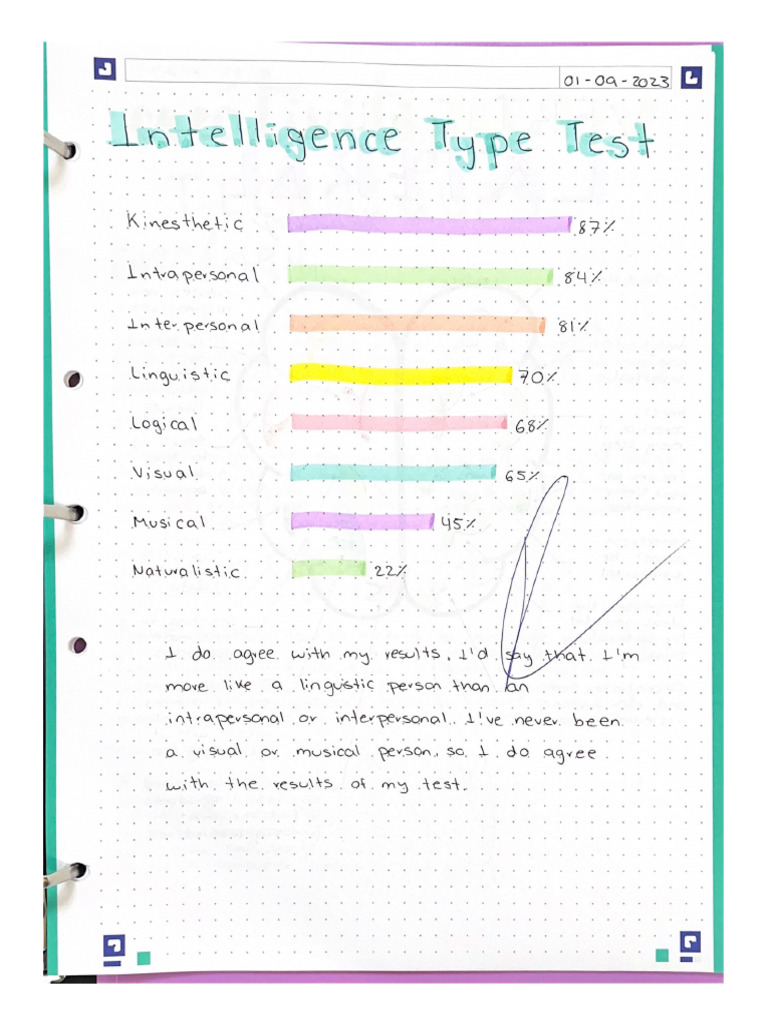 01-09-2023
Intelligence Type Test
Kinesthetic 87%
Intrapersonal 84%
Interpersonal 81%
Linguistic 70%
Logical 68%
Visual 65%
Musical 45%
Naturalistic 22%
I do agree with my results, I'd say that I'm
more like a linguistic person than an
intrapersonal or interpersonal. I've never been
a visual or musical person, so I do agree
with the results of my test.